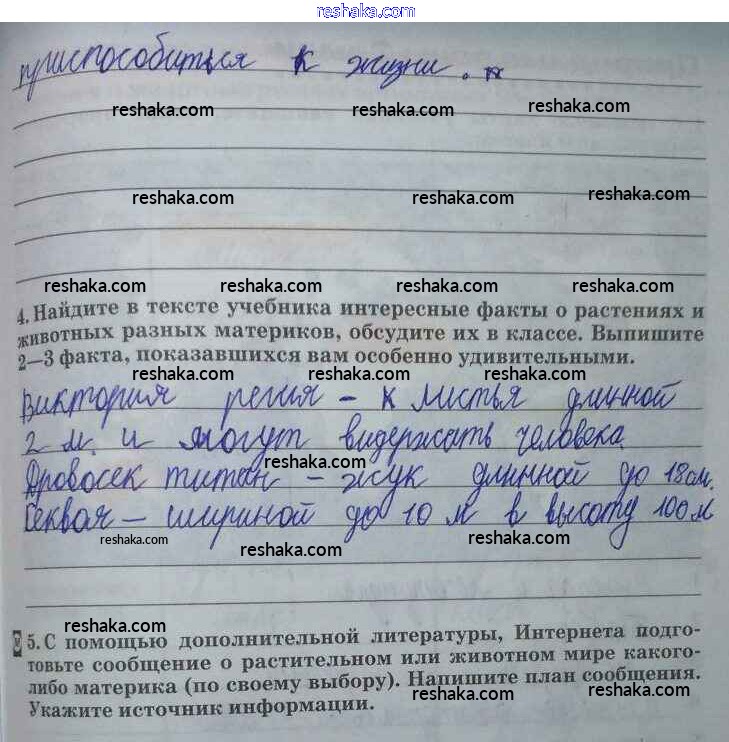 reshaka.com
приспособиться к жизни.
reshaka.com reshaka.com reshaka.com
reshaka.com reshaka.com reshaka.com
reshaka.com reshaka.com reshaka.com reshaka.com
4. Найдите в тексте учебника интересные факты о растениях и
животных разных материков, обсудите их в классе. Выпишите
2—3 факта, показавшихся вам особенно удивительными.
reshaka.com reshaka.com reshaka.com
Виктория регия - к листья длинной
2 м. и могут видержать человека.
reshaka.com reshaka.com
Дровосек титан - жук длинной до 18 см.
Секвоя - шириной до 10 м в высоту 100 м
reshaka.com reshaka.com reshaka.com
reshaka.com
5. С помощью дополнительной литературы, Интернета подго-
товьте сообщение о растительном или животном мире какого-
либо материка (по своему выбору). Напишите план сообщения.
reshaka.com reshaka.com reshaka.com
Укажите источник информации.